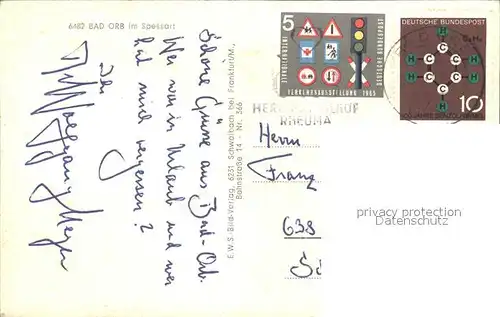 6482 BAD ORB im Spessart
Schöne Grüsse aus Bad-Orb.
Wer war in Urlaub und wer
hat mich vergessen?
Wolfgang Meyer
E.W.S.-Bild-Verlag, 6231 Schwalbach bei Frankfurt/M.,
Bahnstraße 14 - Nr. 366
5
DEUTSCHE BUNDESPOST
VERKEHRSAUSSTELLUNG 1965
DEUTSCHE BUNDESPOST
C₆H₆
H C C H
H C C H
10
HERZ KREISLAUF
RHEUMA
Herrn
Franz
638
privacy protection
Datenschutz